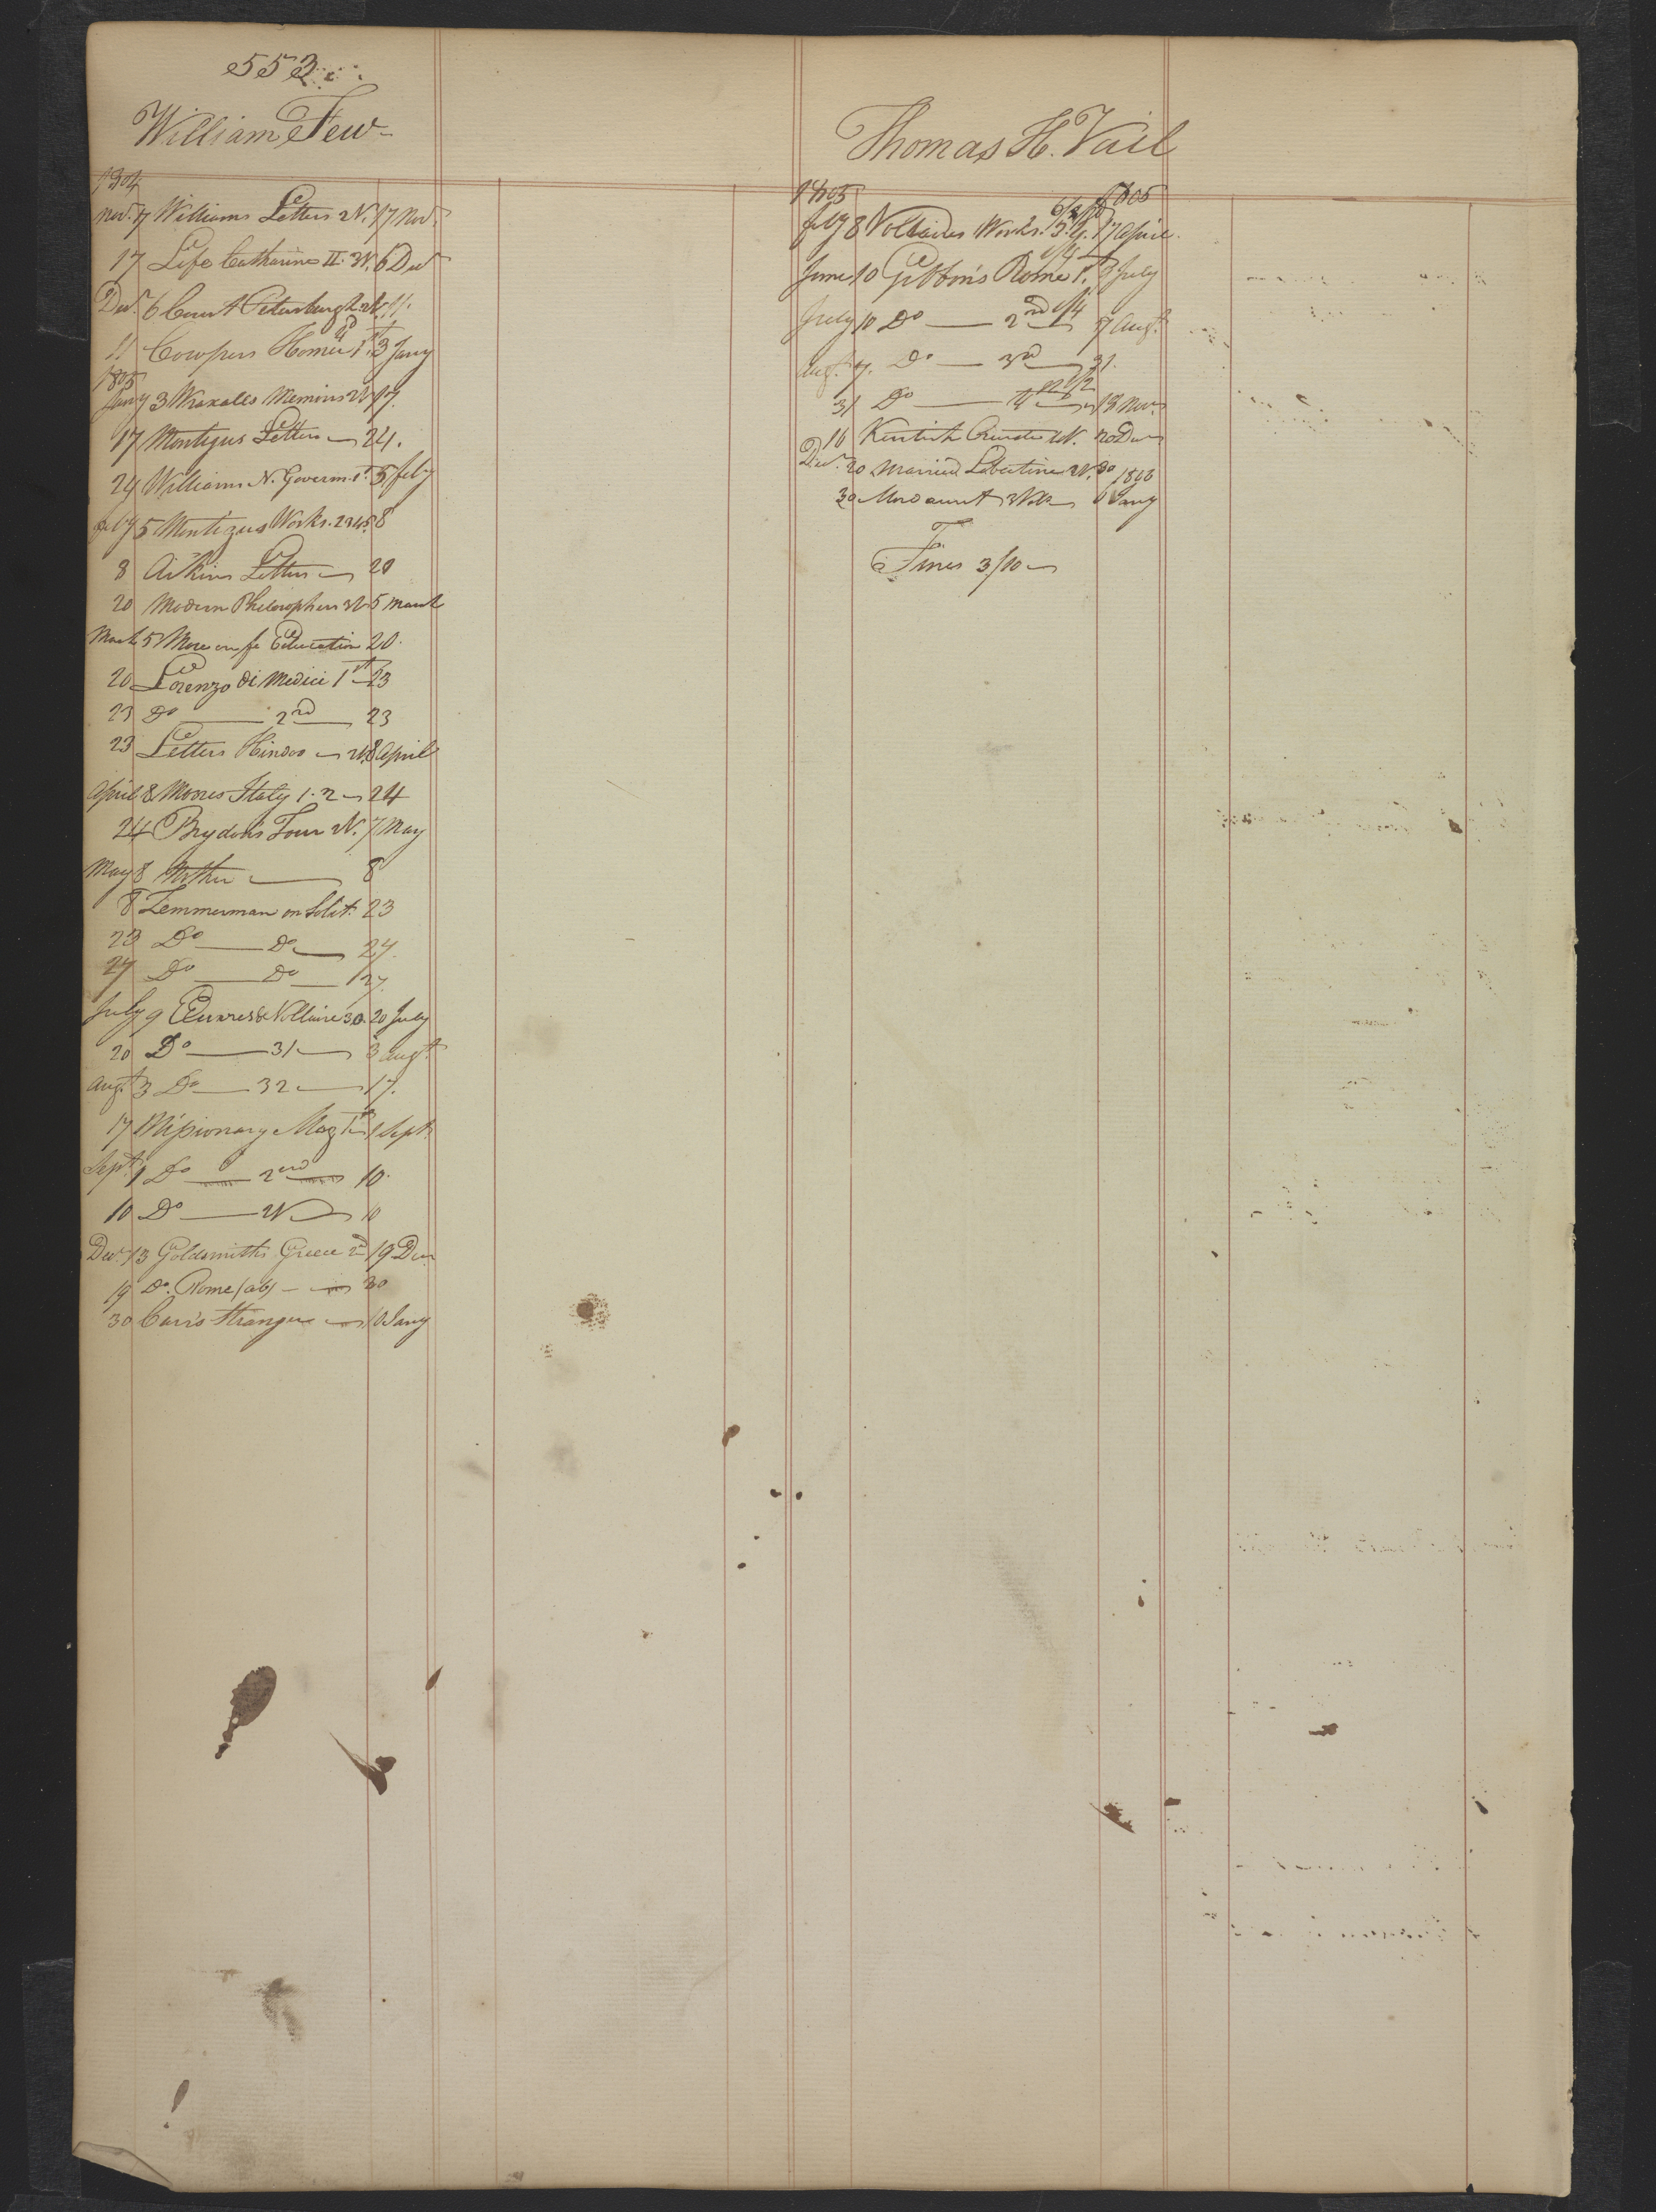 553
William Few
1804
Nov. 7 Williams Letters 2V. 17 Nov.
17 Life Catharine II. 3V. 6 Decr
Decr. 6 Court Petersburgh 2V. 11.
11 Cowpers Homer 1st 3 Jany
1805
Jany 3 Wraxalls Memoirs 2V 17.
17 Montigus Letters 24.
24 Williams N. Governm. 1st 5 feby
feby 5 Montigus Works. 2345. 8
8 Aikins Letters 20
20 Modern Philosophers 3V 5 March
March 5 More on fe Education 20.
20 Lorenzo di Medici 1st 23
23 Do 2nd 23
23 Letters Hindoo 2V. 8 April
April 8 Moores Italy 1.2 24
24 Brydon's Tour 2V. 7 May
May 8 Mother 8
8 Zemmerman on Solit. 23
23 Do Do 27.
27 Do Do 27.
July 9 Œuvres de Voltaire 30. 20 July
20 Do 31 3 Augt.
Augt. 3 Do 32 17.
17 Missionary Mag 1st 1 Sept.
Sept. 1 Do 2nd 10.
10 Do 2V 10
Decr. 13 Goldsmiths Greece 2d 19 Decr
19 Do. Rome (ab) 30
30 Carr's Stranger 10 Jany
Thomas H. Vail
1805 1805
feby 8 Voltaires Works. 3.4. 17 April.
June 10 Gibbons Rome 1st 3 July
1/4
July 10 Do 2nd 7 Augt.
Augt. 7. Do 3rd 31.
2/2
31 Do 4th 18 Nov.
Decr. 16 Kentish Curate 4V. 20 Decr
20 Married Libertine 2V. 30
1806
30 Mordaunt 3Vols 6 Jany
Fines 3/10